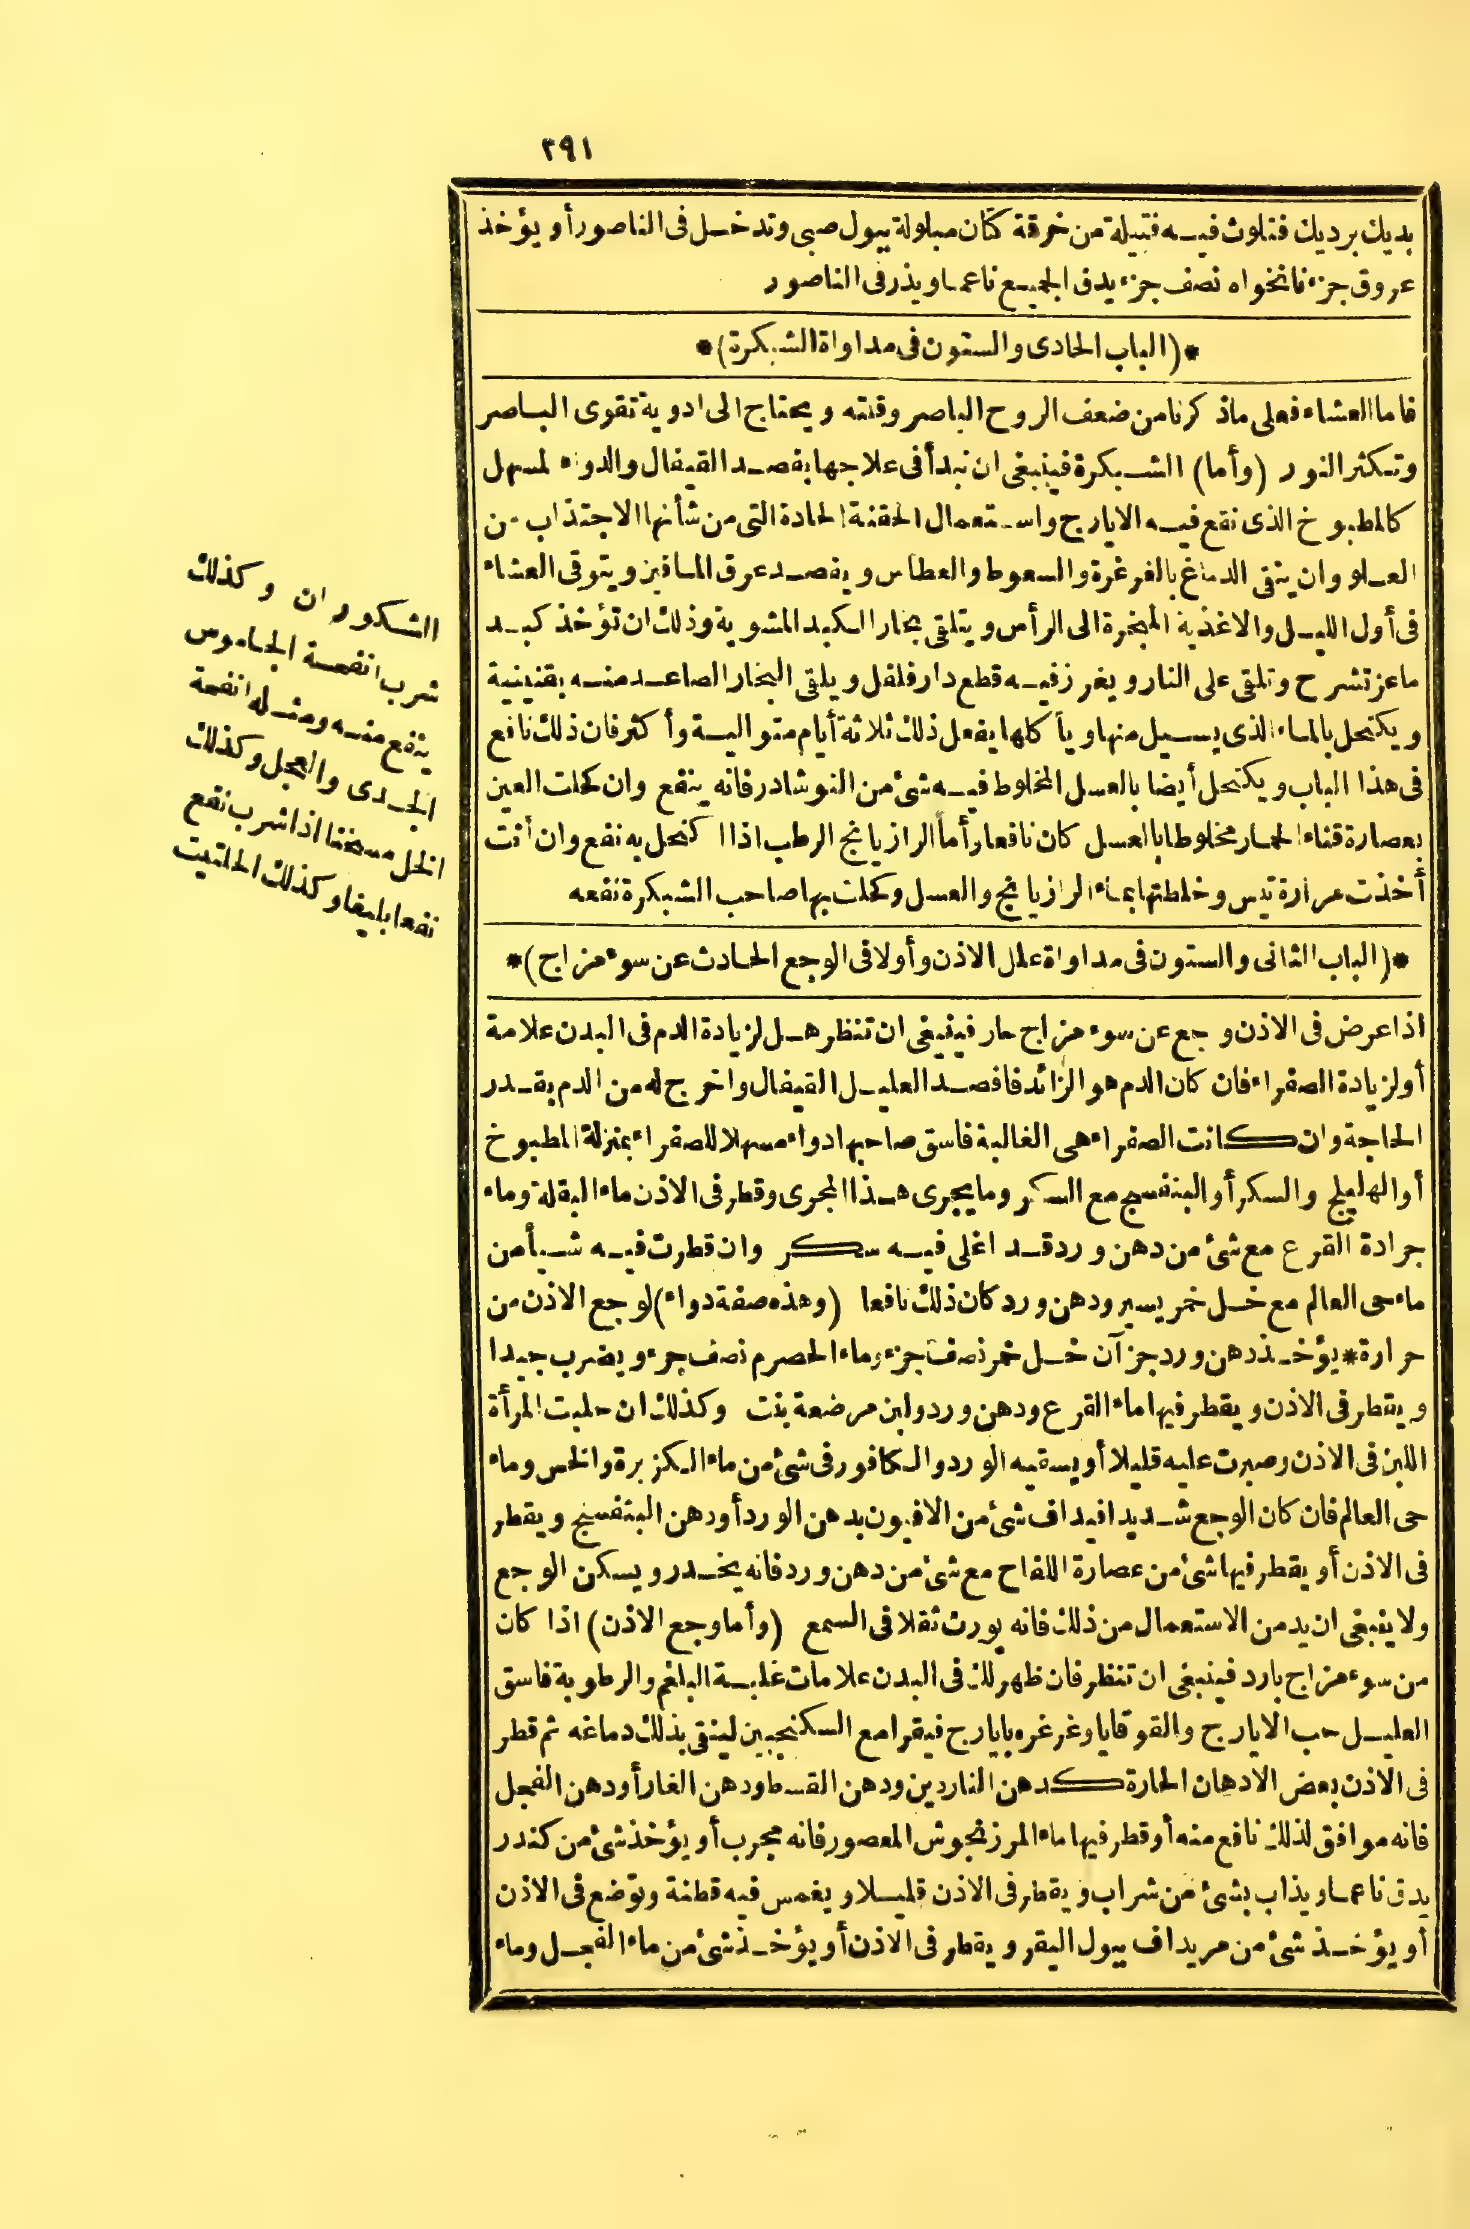 ٢٩١
بديك برديك فتلوث فيه فتيلة من خرقة كتان مبلولة ببول صبى وتدخل فى الناصور أو يؤخذ
عروق جزء نانخواه نصف جزء يدق الجميع ناعما ويذر فى الناصور
*(الباب الحادى والستون فى مداواة الشبكرة)*
فاما العشاء فعلى ما ذكرنا من ضعف الروح الباصر وقلته ويحتاج الى ادوية تقوى الباصر
وتكثر النور (وأما) الشبكرة فينبغى ان نبدأ فى علاجها بفصد القيفال والدواء لمسهل
كالمطبوخ الذى نقع فيه الايارج واستعمال الحقنة الحادة التى من شأنها الاجتذاب من
العلو وان ينقى الدماغ بالغرغرة والسعوط والعطاس ويفصد عرق الماقين ويتوقى العشاء
فى أول الليل والاغذية المبخرة الى الرأس ويتلقى بخار الكبد المشوية وذلك ان تؤخذ كبد
ماعز تشرح وتلقى على النار ويغرز فيه قطع دارفلفل ويلقى البخار الصاعد منه بقنينية
ويكتحل بالماء الذى يسيل منها ويأكلها يفعل ذلك ثلاثة أيام متوالية وأكثر فان ذلك نافع
فى هذا الباب ويكتحل أيضا بالعسل المخلوط فيه شئ من النوشادر فانه ينفع وان كحلت العين
بعصارة قثاء الحمار مخلوطا بالعسل كان نافعا وأما الرازيانج الرطب اذا اكتحل به نفع وان أنت
أخذت مرارة تيس وخلطتها بماء الرازيانج والعسل وكحلت بها صاحب الشبكرة نفعه
*(الباب الثانى والستون فى مداواة علل الاذن وأولا فى الوجع الحادث عن سوء مزاج)*
اذا عرض فى الاذن وجع عن سوء مزاج حار فينبغى ان تنظر هل لزيادة الدم فى البدن علامة
أو لزيادة الصفراء فان كان الدم هو الزائد فافصد العليل القيفال واخرج له من الدم بقدر
الحاجة وان كانت الصفراء هى الغالبة فاسق صاحبها دواء مسهلا للصفراء بمنزلة المطبوخ
أو الهليلج والسكر أو البنفسج مع السكر وما يجرى هذا المجرى وقطر فى الاذن ماء البقلة وماء
جرادة القرع مع شئ من دهن ورد قد اغلى فيه سكر وان قطرت فيه شيأ من
ماء حى العالم مع خل خمر يسير ودهن ورد كان ذلك نافعا (وهذه صفة دواء) لوجع الاذن من
حرارة * يؤخذ دهن ورد جزآن خل خمر نصف جزء وماء الحصرم نصف جزء ويضرب جيدا
ويقطر فى الاذن ويقطر فيها ماء القرع ودهن ورد ولبن مرضعة بنت وكذلك ان حلبت المرأة
اللبن فى الاذن وصبرت عليه قليلا أو يسقيه الورد والكافور فى شئ من ماء الكزبرة والخس وماء
حى العالم فان كان الوجع شديدا فيداف شئ من الافيون بدهن الورد أو دهن البنفسج ويقطر
فى الاذن أو يقطر فيها شئ من عصارة اللفاح مع شئ من دهن ورد فانه يخدر ويسكن الوجع
ولا ينبغى ان يدمن الاستعمال من ذلك فانه يورث ثقلا فى السمع (وأما وجع الاذن) اذا كان
من سوء مزاج بارد فينبغى ان تنظر فان ظهر لك فى البدن علامات غلبة البلغم والرطوبة فاسق
العليل حب الايارج والقوقايا وغرغره بايارج فيقرا مع السكنجبين لينقى بذلك دماغه ثم قطر
فى الاذن بعض الادهان الحارة كدهن الناردين ودهن القسط ودهن الغار أو دهن الفجل
فانه موافق لذلك نافع منه أو قطر فيها ماء المرزنجوش المعصور فانه مجرب أو يؤخذ شئ من كندر
يدق ناعما ويذاب بشئ من شراب ويقطر فى الاذن قليلا ويغمس فيه قطنة وتوضع فى الاذن
أو يؤخذ شئ من مر يداف ببول البقر ويقطر فى الاذن أو يؤخذ شئ من ماء الفجل وماء
الشكوران وكذلك
شرب انفحة الجاموس
ينفع منه ومثله انفحة
الجدى والعجل وكذلك
الخل مسخنا اذا شرب نفع
نفعا بليغا وكذلك الحلتيت